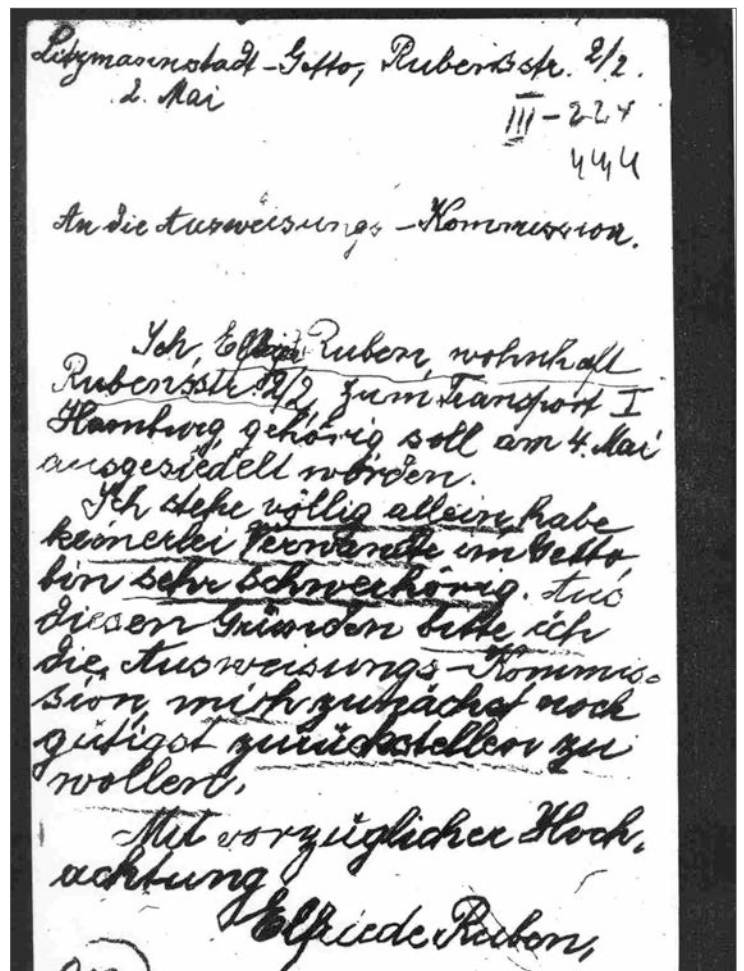 Litzmannstadt-Getto, Rubensstr. 2/2.
2. Mai
III-227
444
An die Ausweisungs-Kommission.
Ich, Elfriede Ruben, wohnhaft
Rubensstr. 2/2, zum Transport I
Hamburg, gehörig soll am 4. Mai
ausgesiedelt werden.
Ich stehe völlig allein, habe
keinerlei Verwandte im Getto,
bin sehr schwerhörig. Aus
diesen Gründen bitte ich
die Ausweisungs-Kommis-
sion, mich zunächst noch
gütigst zurückstellen zu
wollen.
Mit vorzüglicher Hoch-
achtung
Elfriede Ruben,